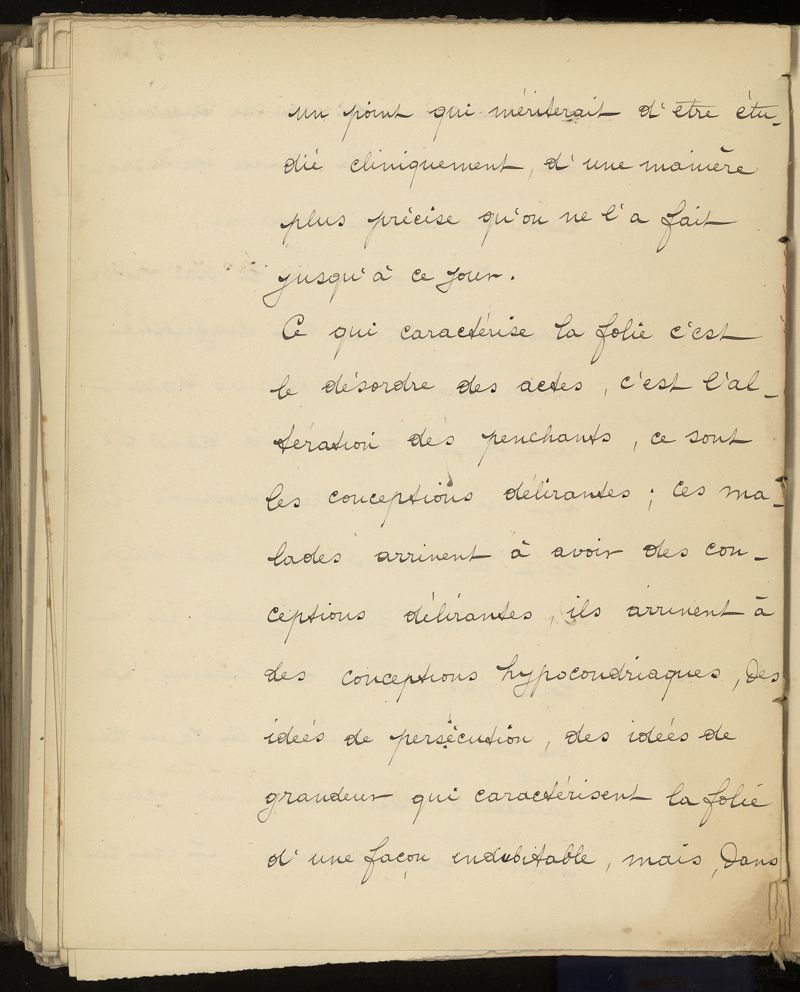 un point qui mériterait d'etre étu-
dié cliniquement, d'une manière
plus précise qu'on ne l'a fait
jusqu'à ce jour.
Ce qui caractérise la folie c'est
le désordre des actes, c'est l'al-
tération des penchants, ce sont
les conceptions délirantes; ces ma-
lades arrivent à avoir des con-
ceptions délirantes, ils arrivent à
des conceptions hypocondriaques, des
idées de persécution, des idées de
grandeur qui caractérisent la folie
d'une façon indubitable, mais, dans